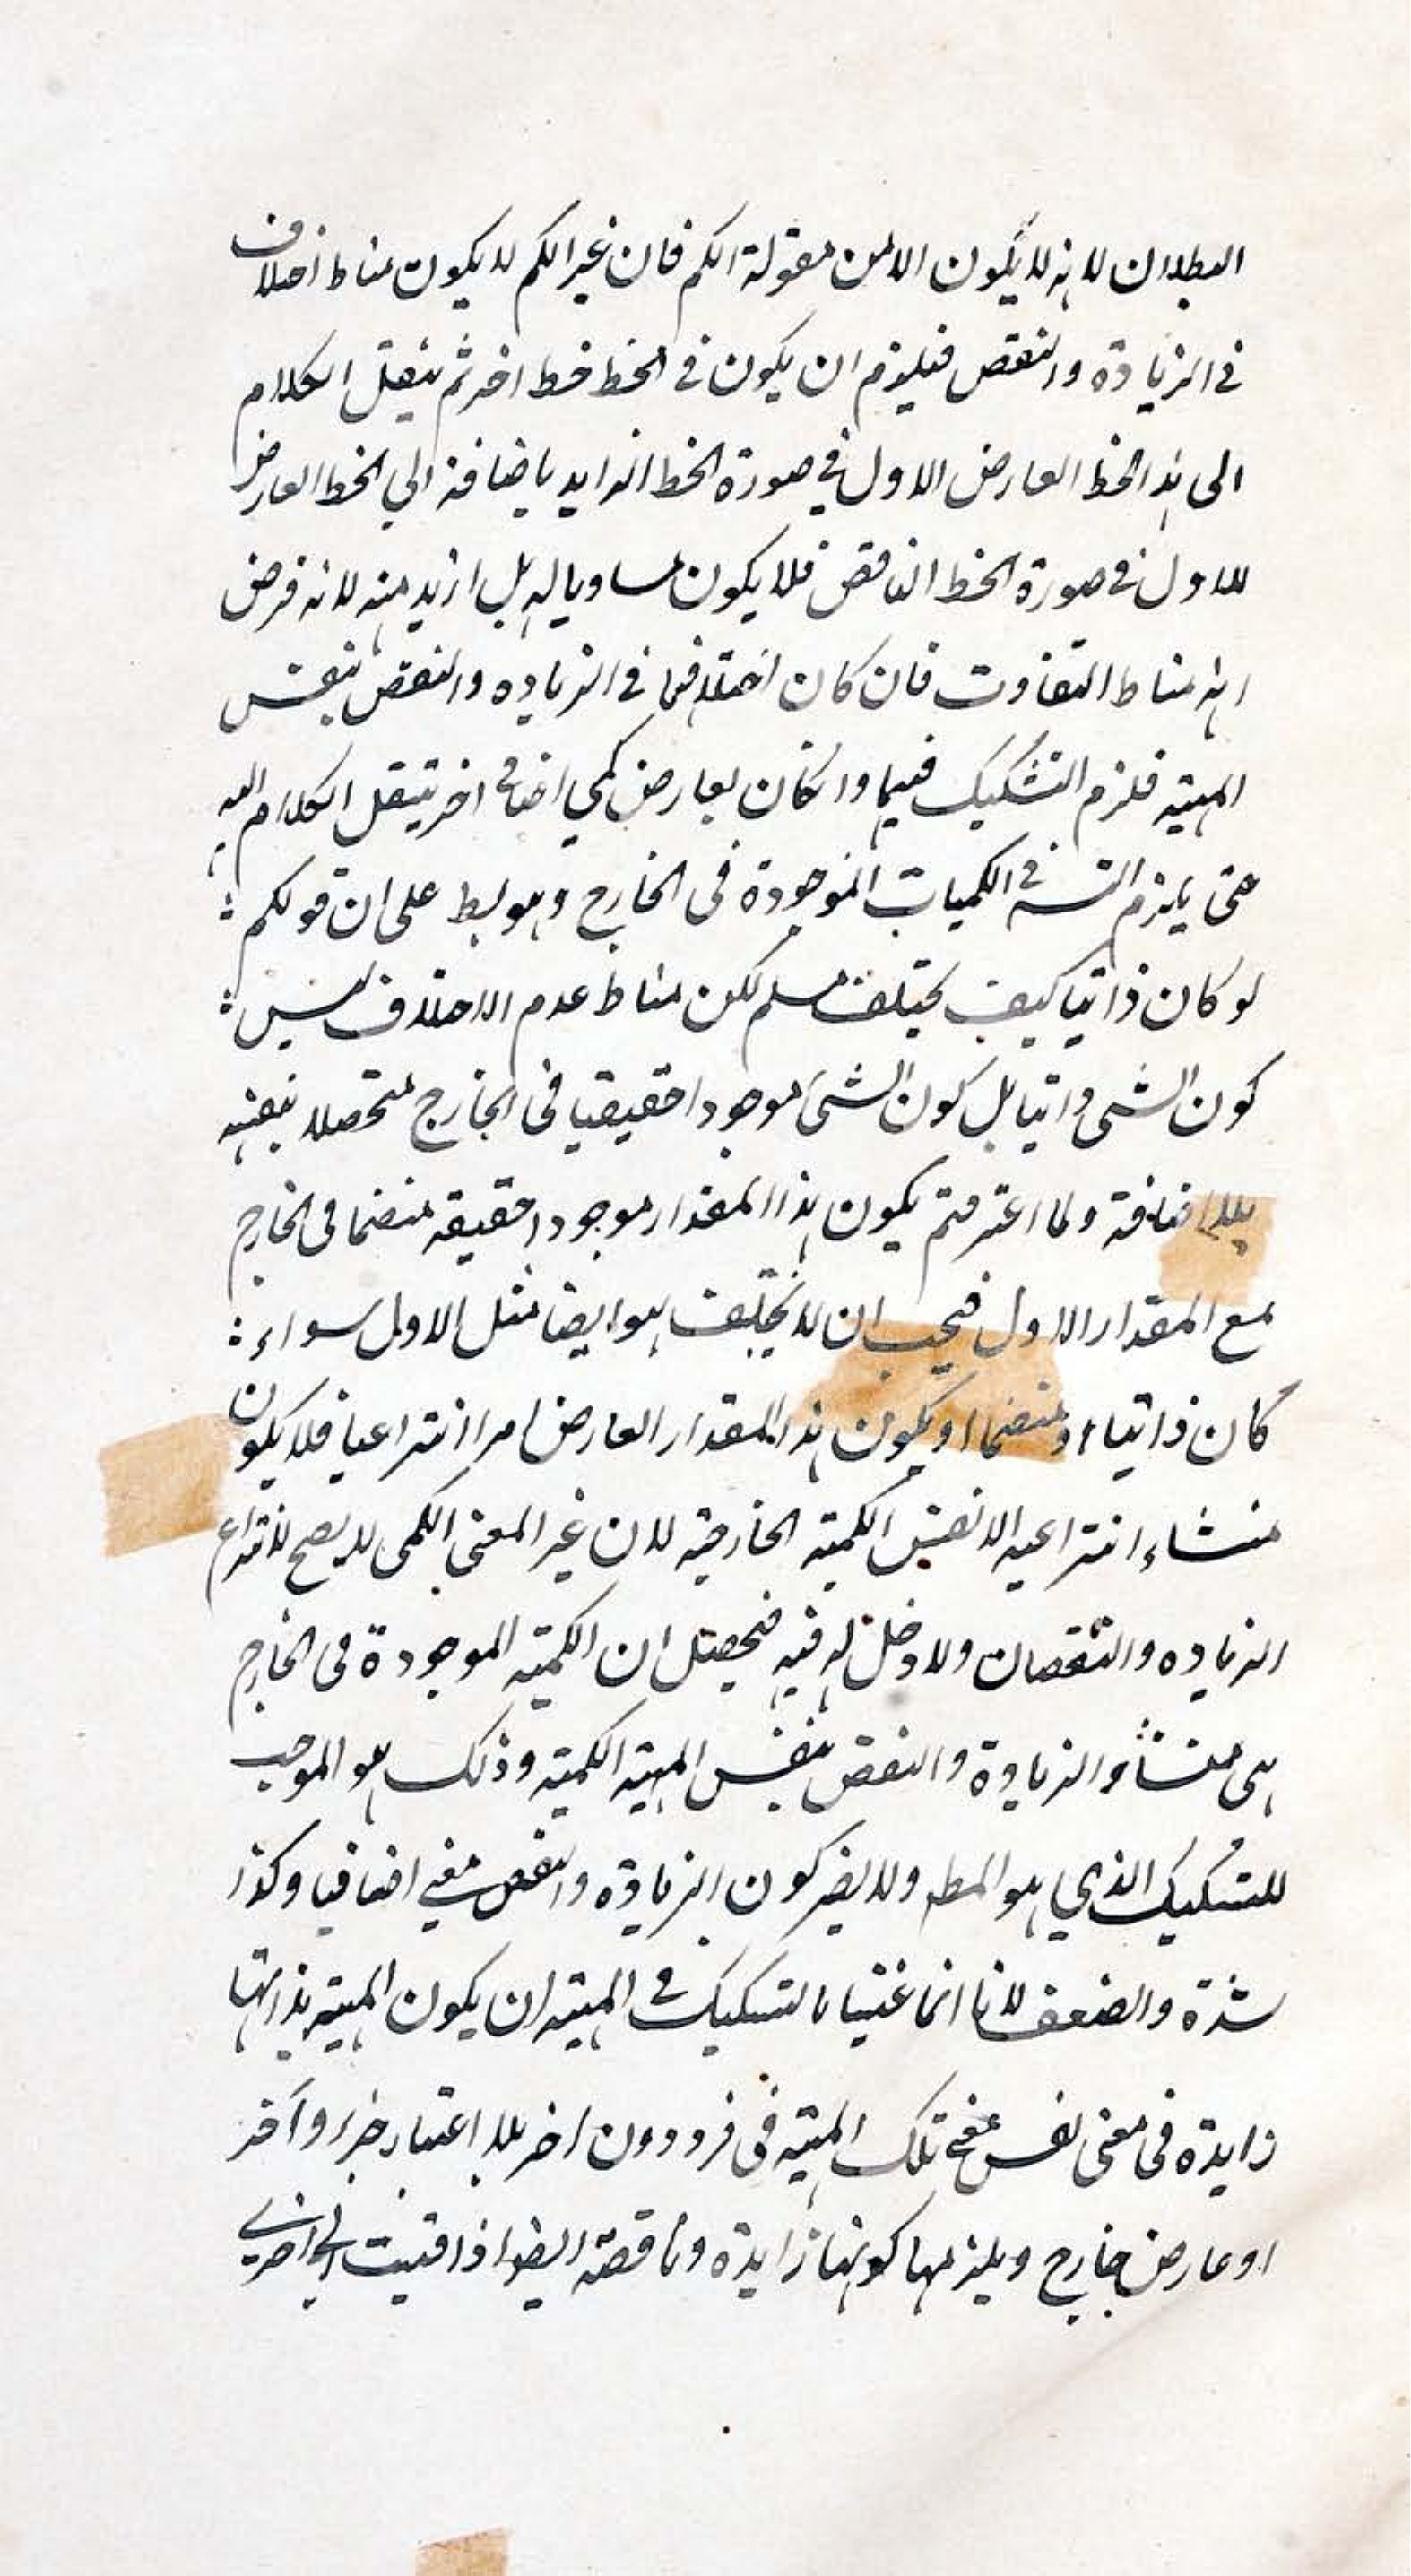 البطلان لانه لا يكون الا من مقولة الكم فان غير الكم لا يكون مناط اختلاف
في الزيادة والنقص فيلزم ان يكون في الخط خط اخر ثم ينقل الكلام
الى هذا الخط العارض الاول في صورة الخط الزايد باضافة الي الخط العارض
للاول في صورة الخط الناقص فلا يكون مساويا له بل ازيد منه لانه فرض
انه مناط التفاوت فان كان اختلافهما في الزياده والنقص بنفس
المهيته فلزم التشكيك فيها وان كان بعارض كمي اضافي اخر ينتقل الكلام اليه
حتى يلزم التسـ في الكميات الموجودة في الخارج وهو بط على ان قولكم
لو كان ذاتيا كيف يختلف مسلم لكن مناط عدم الاختلاف ليس
كون الشي ذاتيا بل كون الشئ موجودا حقيقيا في الخارج متحصلا بنفسه
بلا اضافة ولما اعترفتم يكون هذا المقدار موجودا حقيقه منضما في الخارج
مع المقدار الاول فيجب ان لا يختلف هو ايضا مثل الاول سواء
كان ذاتيا او منضما او يكون هذا المقدار العارض امرا انتزاعيا فلا يكون
منشاء انتزاعيه الا نفس الكميته الخارجيه لان غير المعنى الكمى لا يصح لانتزاع
الزياده والنقصان ولا دخل له فيه فحصل ان الكميته الموجودة في الخارج
هى منشأ الزيادة والنقص بنفس المهيته الكميته وذلك هو الموجب
للتشكيك الذي هو المط ولا يضر كون الزيادة والنقص معني اضافيا وكذا
شدة والضعف لانا انما عنينا بالتشكيك في المهيته ان يكون المهيته بذاتها
زايدة في معنى نفس تلك المهيته في فرد دون اخر بلا اعتبار جزء واخر
او عارض خارج ويلزمها كونها زايدة وناقصة ايضا اذا قيست الي اخرى